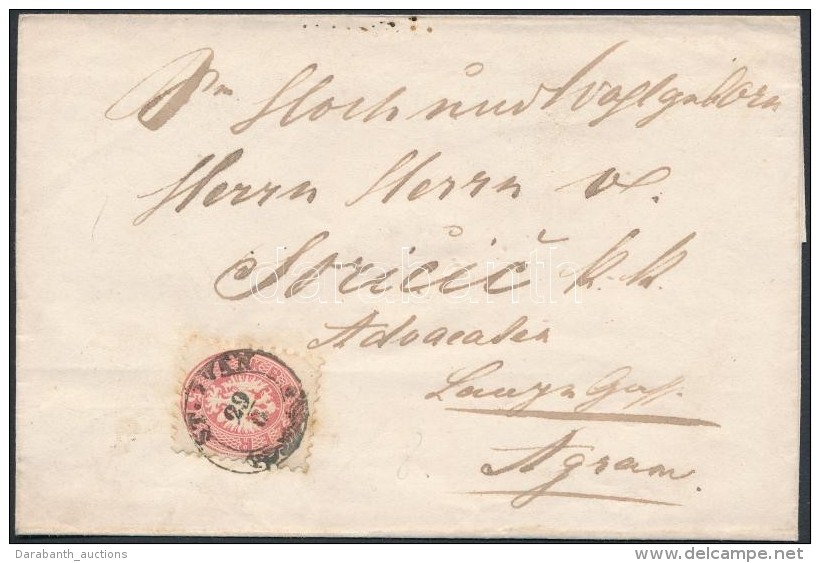 Hoch und Wohlgeborn
Herrn Herrn v.
Soričić k.k.
Advocaten
Lange Gasse
Agram.
ST. IVAN
29
darabanth
Darabanth_auctions
delcampe.net